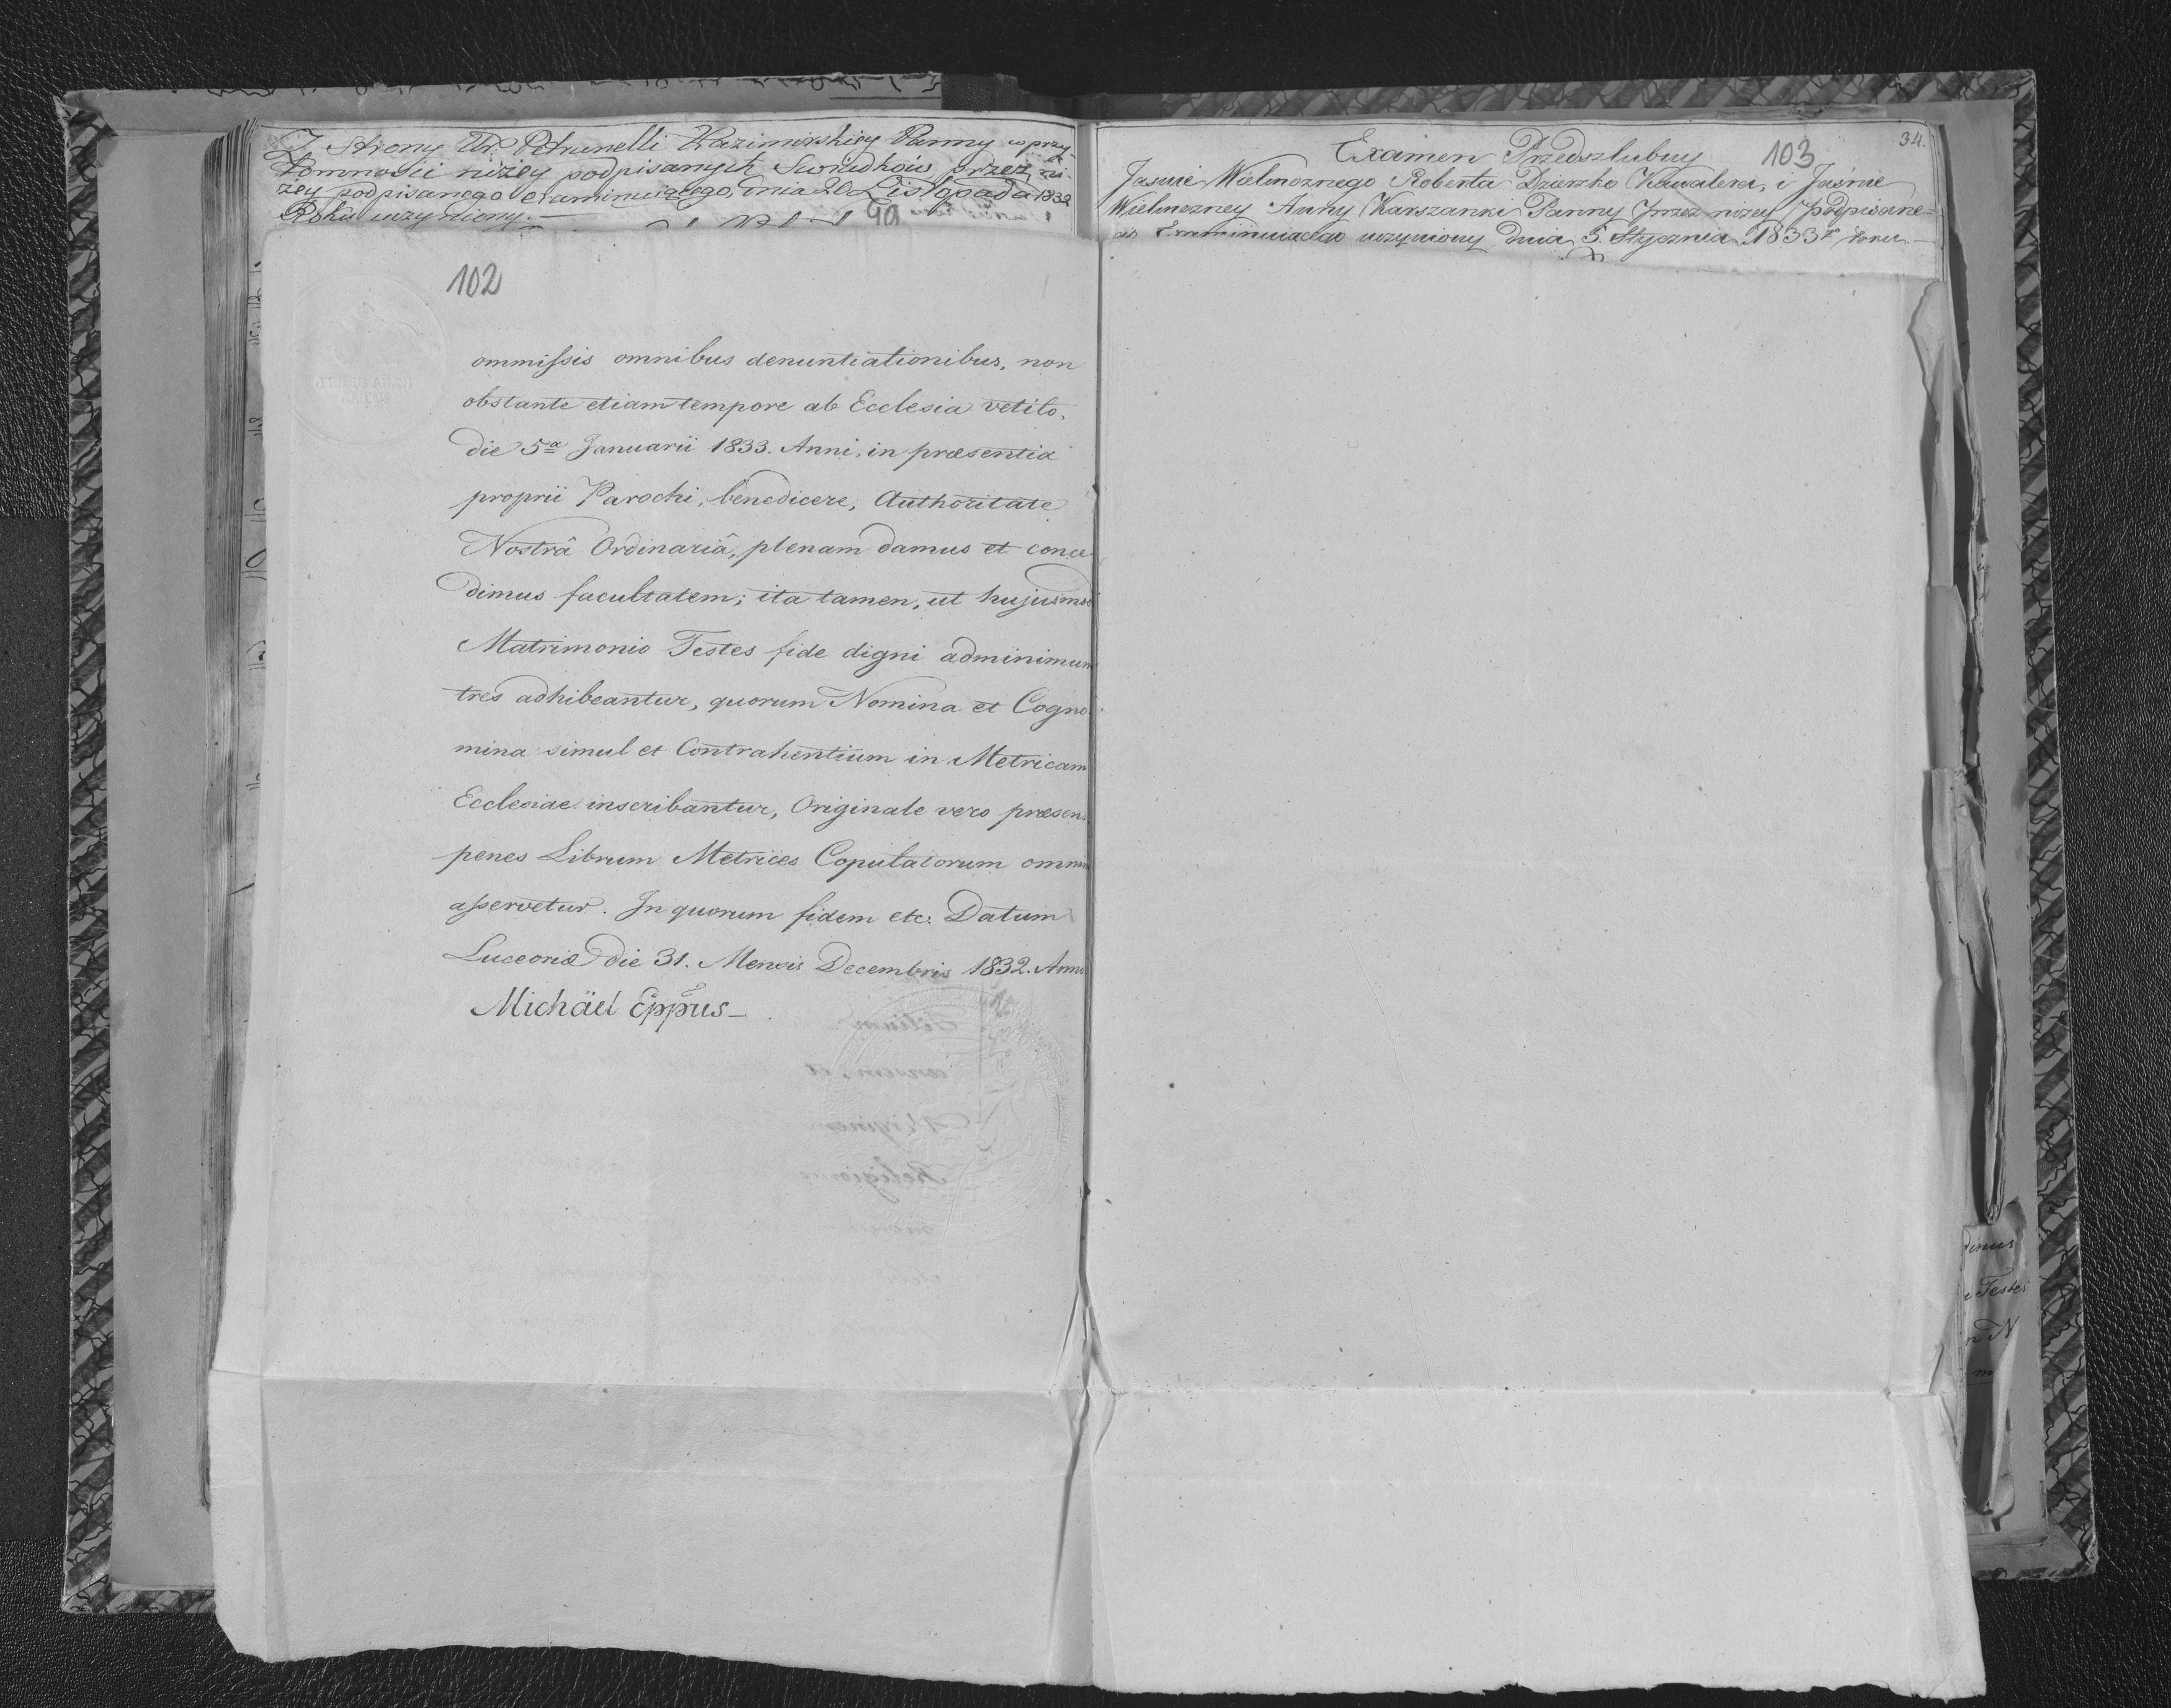 Z Strony Ur. Petrunelli Kazimirskiey Panny w przy-
tomności niżey podpisanych Swiadków przez ni-
żey podpisanego examinuiącego, dnia 20 Listopada 1832
Roku uczyniony.
99
102
ommissis omnibus denuntiationibus, non
obstante etiam tempore ab Ecclesia vetito,
die 5ª Januarii 1833. Anni, in præsentia
proprii Parochi, benedicere, Authoritate
Nostrâ Ordinariâ, plenam damus et conce
dimus facultatem; ita tamen, ut hujusmodi
Matrimonio Testes fide digni adminimum
tres adhibeantur, quorum Nomina et Cogno
mina simul et Contrahentium in Metricam
Ecclesiae inscribantur, Originale vero præsens
penes Librum Metrices Copulatorum omnino
asservetur. In quorum fidem etc. Datum
Luceoriæ die 31. Mensis Decembris 1832. Anni
Michäel Eppus
34.
Examen Przedszlubny 103
Jasnie Wielmożnego Roberta Dzierzko Kawalera, i Jaśnie
Wielmożney Anny Karszanki Panny przez niżey podpisane-
go Examinuiącego uczyniony dnia 5. Stycznia 1833 Roku
dimus
Testes
N
m